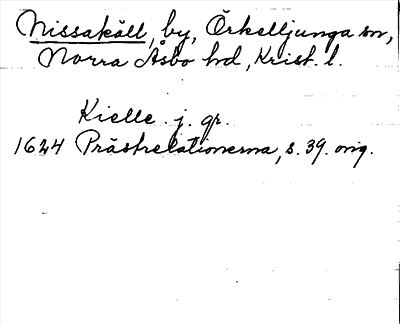 Nissakäll, by, Örkelljunga sn,
Norra Åsbo hd, Krist. l.
Kielle. j. gr.
1624 Prästrelationerna, s. 39. orig.